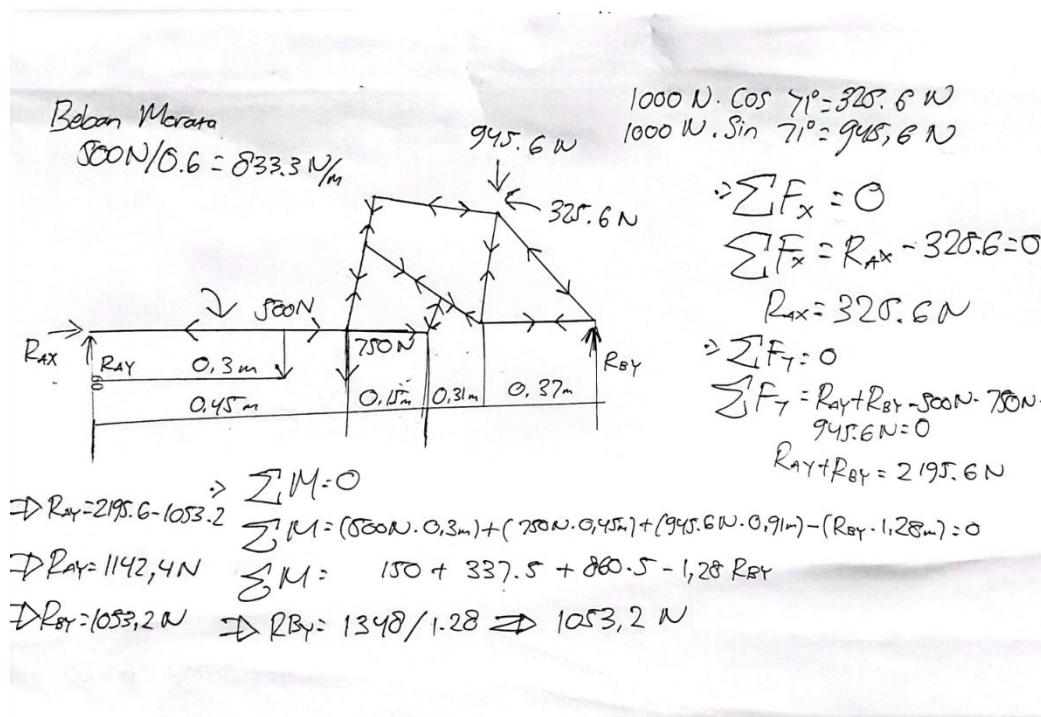 Beban Merata
500N/0.6 = 833.3 N/m
1000 N. Cos 71° = 325.6 N
1000 N. Sin 71° = 945,6 N
945.6 N
325.6 N
500N
RAX
RAY
0.3 m
750 N
RBY
0.45 m
0.15m
0.31m
0.37m
∑Fx = 0
∑Fx = RAX - 325.6=0
RAX = 325.6 N
∑Fy = 0
∑Fy = RAY+RBY-500N-750N-
945.6N=0
RAY+RBY = 2195.6 N
∑M=0
∑M=(500N.0,3m)+(750N.0,45m)+(945.6N.0,91m)-(RBY.1,28m)=0
∑M= 150 + 337.5 + 860.5 - 1,28 RBY
⇒ RBY= 1348/1.28 ⇒ 1053,2 N
⇒ RAY=2195.6-1053.2
⇒ RAY=1142,4N
⇒ RBY=1053,2 N